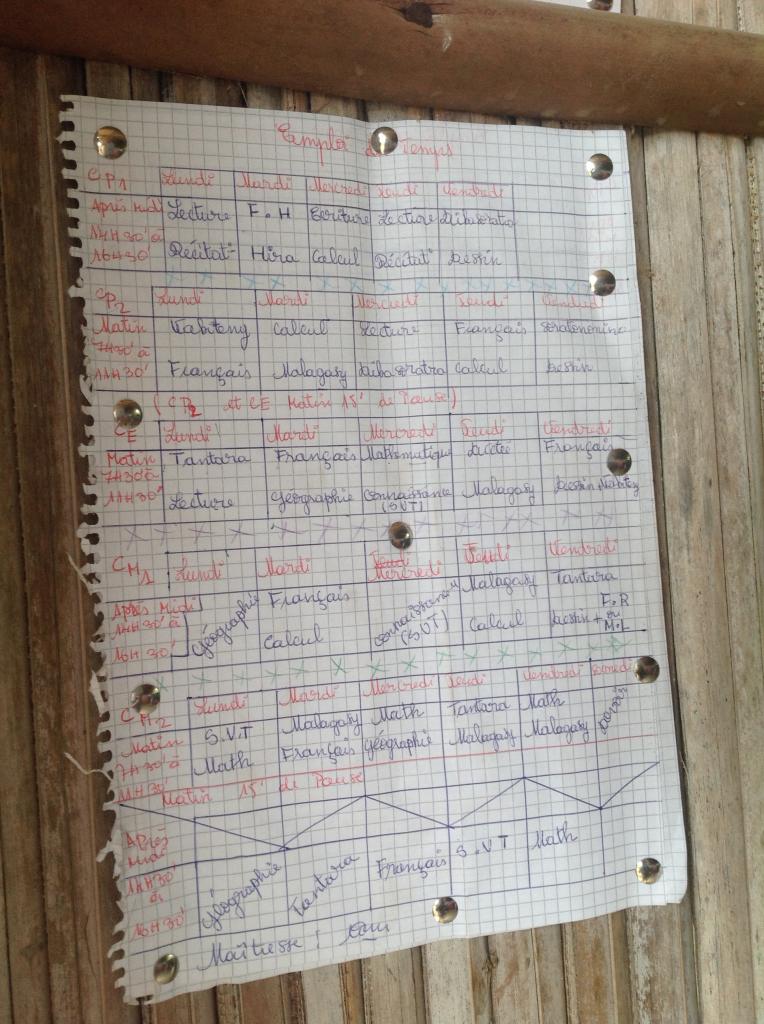 Emploi du Temps
CP1 Lundi Mardi Mercredi Jeudi Vendredi
Après Midi Lecture F.H Ecriture Lecture
14H30' à
16H30' Récitat° Hira Calcul Récitat° Dessin
CP2 Lundi Mardi Mercredi Jeudi Vendredi
Matin Calcul Lecture Français
7H30' à
11H30' Français Malagasy Calcul Dessin
(CP2 et CE Matin 15' de Pause)
CE Lundi Mardi Mercredi Jeudi Vendredi
Matin Tantara Français Mathématique Dictée Français
7H30 à
11H30' Lecture Géographie Connaissance Malagasy Dessin
(SVT)
CM1 Lundi Mardi Jeudi Mercredi Jeudi Vendredi
Après Midi Géographie Français Connaissance Malagasy Tantara
14H30' à (SVT) F.R
16H30' Calcul Calcul Dessin + ou
M.L
CM2 Lundi Mardi Mercredi Jeudi Vendredi Samedi
Matin S.V.T Malagasy Math Tantara Math Devoir
7H30' à Math Français Géographie Malagasy Malagasy
11H30'
Matin 15' de Pause
Après
Midi
14H30' Géographie Tantara Français S.VT Math
à
16H30'
Maîtresse :